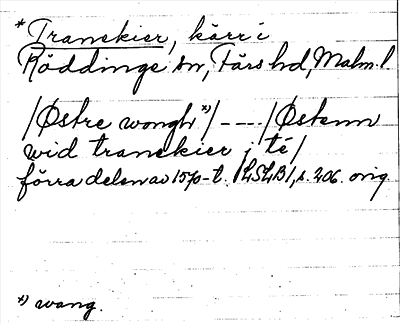 *Tranekier, kärr i
Röddinge sn, Färs hd, Malm. l
/Østre wongh *)/ ---- /Østenn
wid tranekier i té/
förra delen av 1570-t. /LSLB/, s. 206. orig
*) wang.